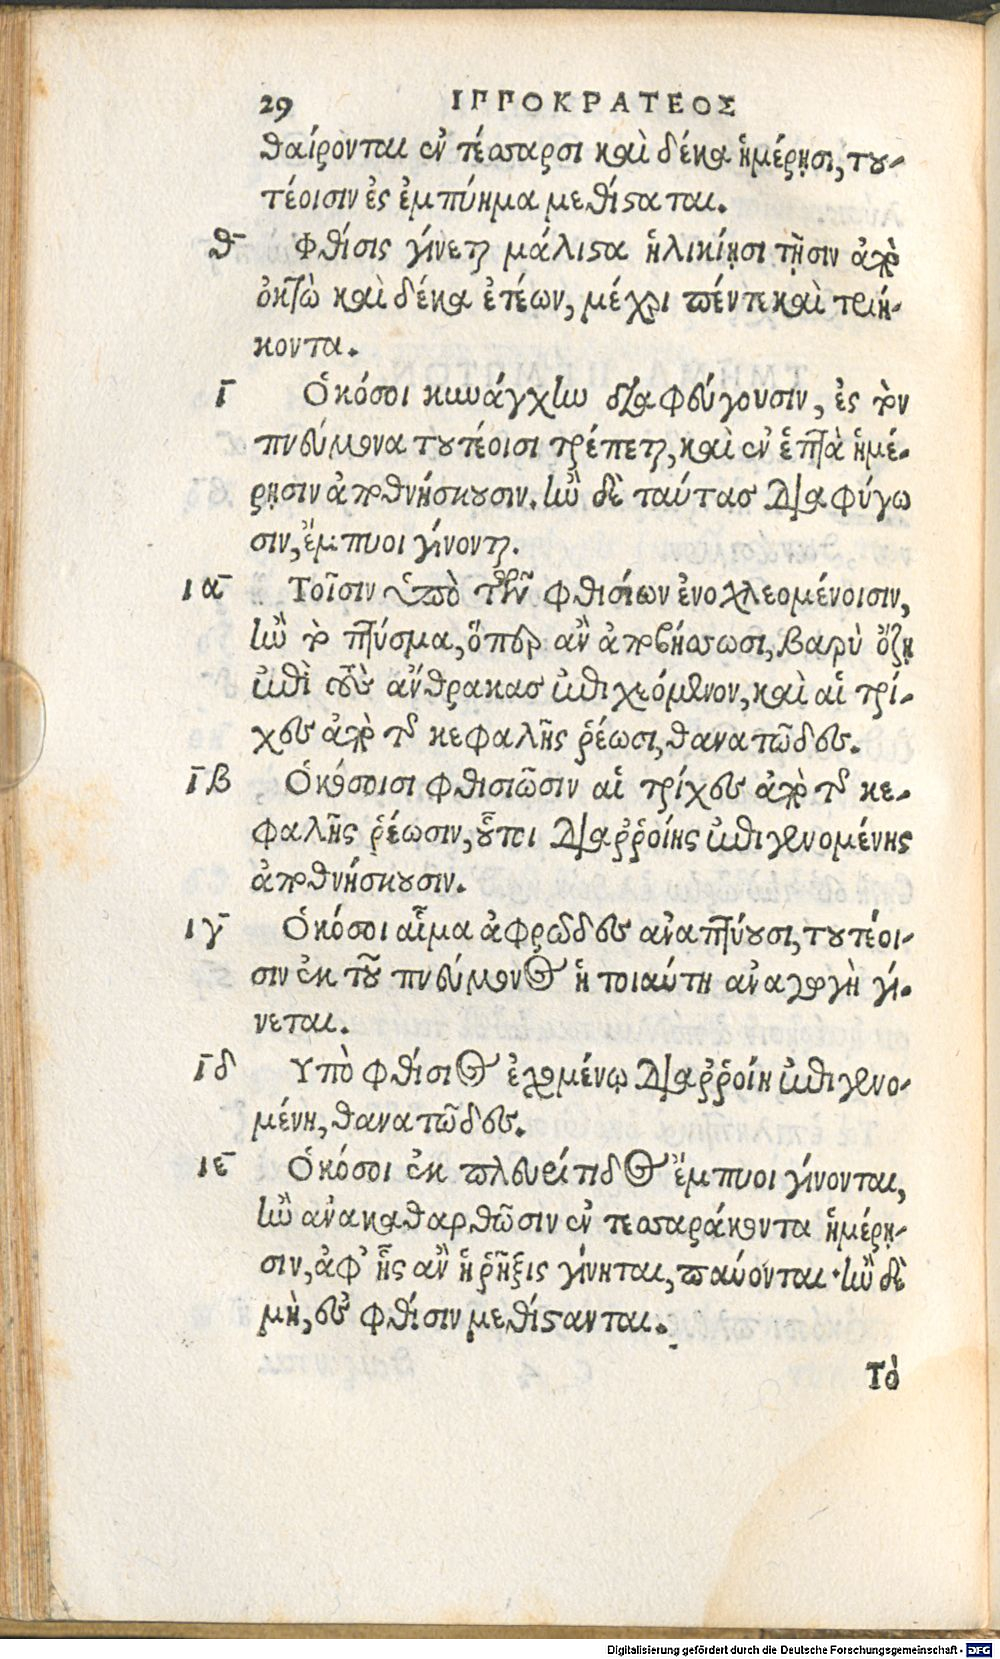 29 ΙΠΠΟΚΡΑΤΕΟΣ
θαίρονται ἐν τέσσαρσι καὶ δέκα ἡμέρῃσι, του-
τέοισιν ἐς ἐμπύημα μεθίσταται.
θ Φθίσις γίνεται μάλιστα ἡλικίῃσι τῇσιν ἀπὸ
ὀκτὼ καὶ δέκα ἐτέων, μέχρι πέντε καὶ τριή-
κοντα.
ι Ὁκόσοι κυνάγχην διαφεύγουσιν, ἐς τὸν
πνεύμονα τουτέοισι τρέπεται, καὶ ἐν ἑπτὰ ἡμέ-
ρῃσιν ἀποθνήσκουσιν. ἢν δὲ ταύτας διαφύγω
σιν, ἔμπυοι γίνονται.
ια Τοῖσιν ὑπὸ τῶν φθισίων ἐνοχλεομένοισιν,
ἢν τὸ πτύσμα, ὅπερ ἂν ἀποβήσσωσι, βαρὺ ὄζῃ
ἐπὶ τοὺς ἄνθρακας ἐπιχεόμενον, καὶ αἱ τρί-
χες ἀπὸ τῆς κεφαλῆς ῥέωσι, θανατῶδες.
ιβ Ὁκόσοισι φθισιῶσιν αἱ τρίχες ἀπὸ τῆς κε-
φαλῆς ῥέωσιν, οὗτοι διαῤῥοίης ἐπιγενομένης
ἀποθνήσκουσιν.
ιγ Ὁκόσοι αἷμα ἀφρῶδες ἀναπτύουσι, τουτέοι-
σιν ἐκ τοῦ πνεύμονος ἡ τοιαύτη ἀναγωγὴ γί-
νεται.
ιδ Υπὸ φθίσιος ἐχομένῳ διαῤῥοίη ἐπιγενο-
μένη, θανατῶδες.
ιε Ὁκόσοι ἐκ πλευρίτιδος ἔμπυοι γίνονται,
ἢν ἀνακαθαρθῶσιν ἐν τεσσαράκοντα ἡμέρῃ-
σιν, ἀφ' ἧς ἂν ἡ ῥῆξις γίνηται, παύονται· ἢν δὲ
μὴ, ἐς φθίσιν μεθίστανται.
Τὸ
Digitalisierung gefördert durch die Deutsche Forschungsgemeinschaft - DFG